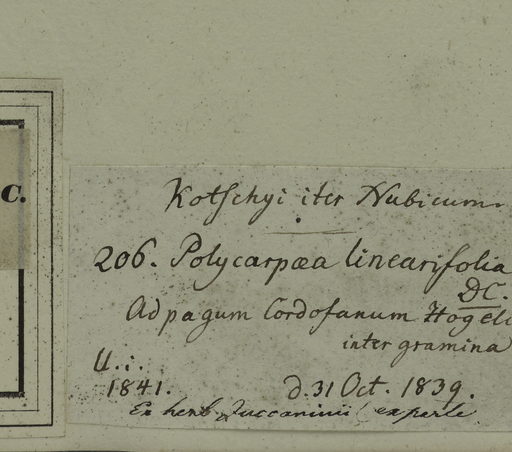 C.
Kotschyi iter Nubicum.
206. Polycarpæa linearifolia
DC.
Ad pagum Cordofanum Hogeli
inter gramina
U. i.
1841.
d. 31 Oct. 1839.
Ex herb. Zuccarinii (ex parte